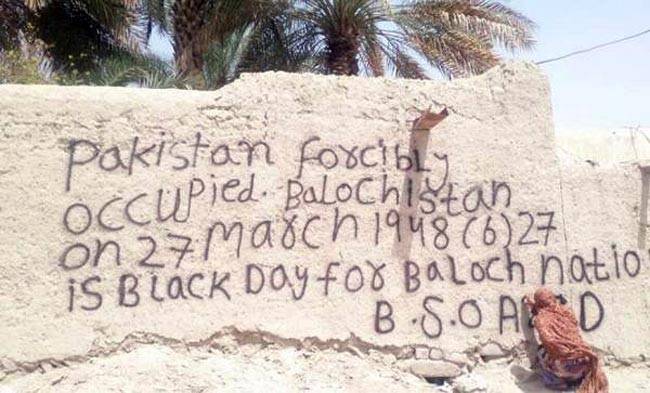 Pakistan forcibly
occupied. Balochistan
on 27 March 1948 (6) 27
is Black Day for Baloch natio
B.S.O A D